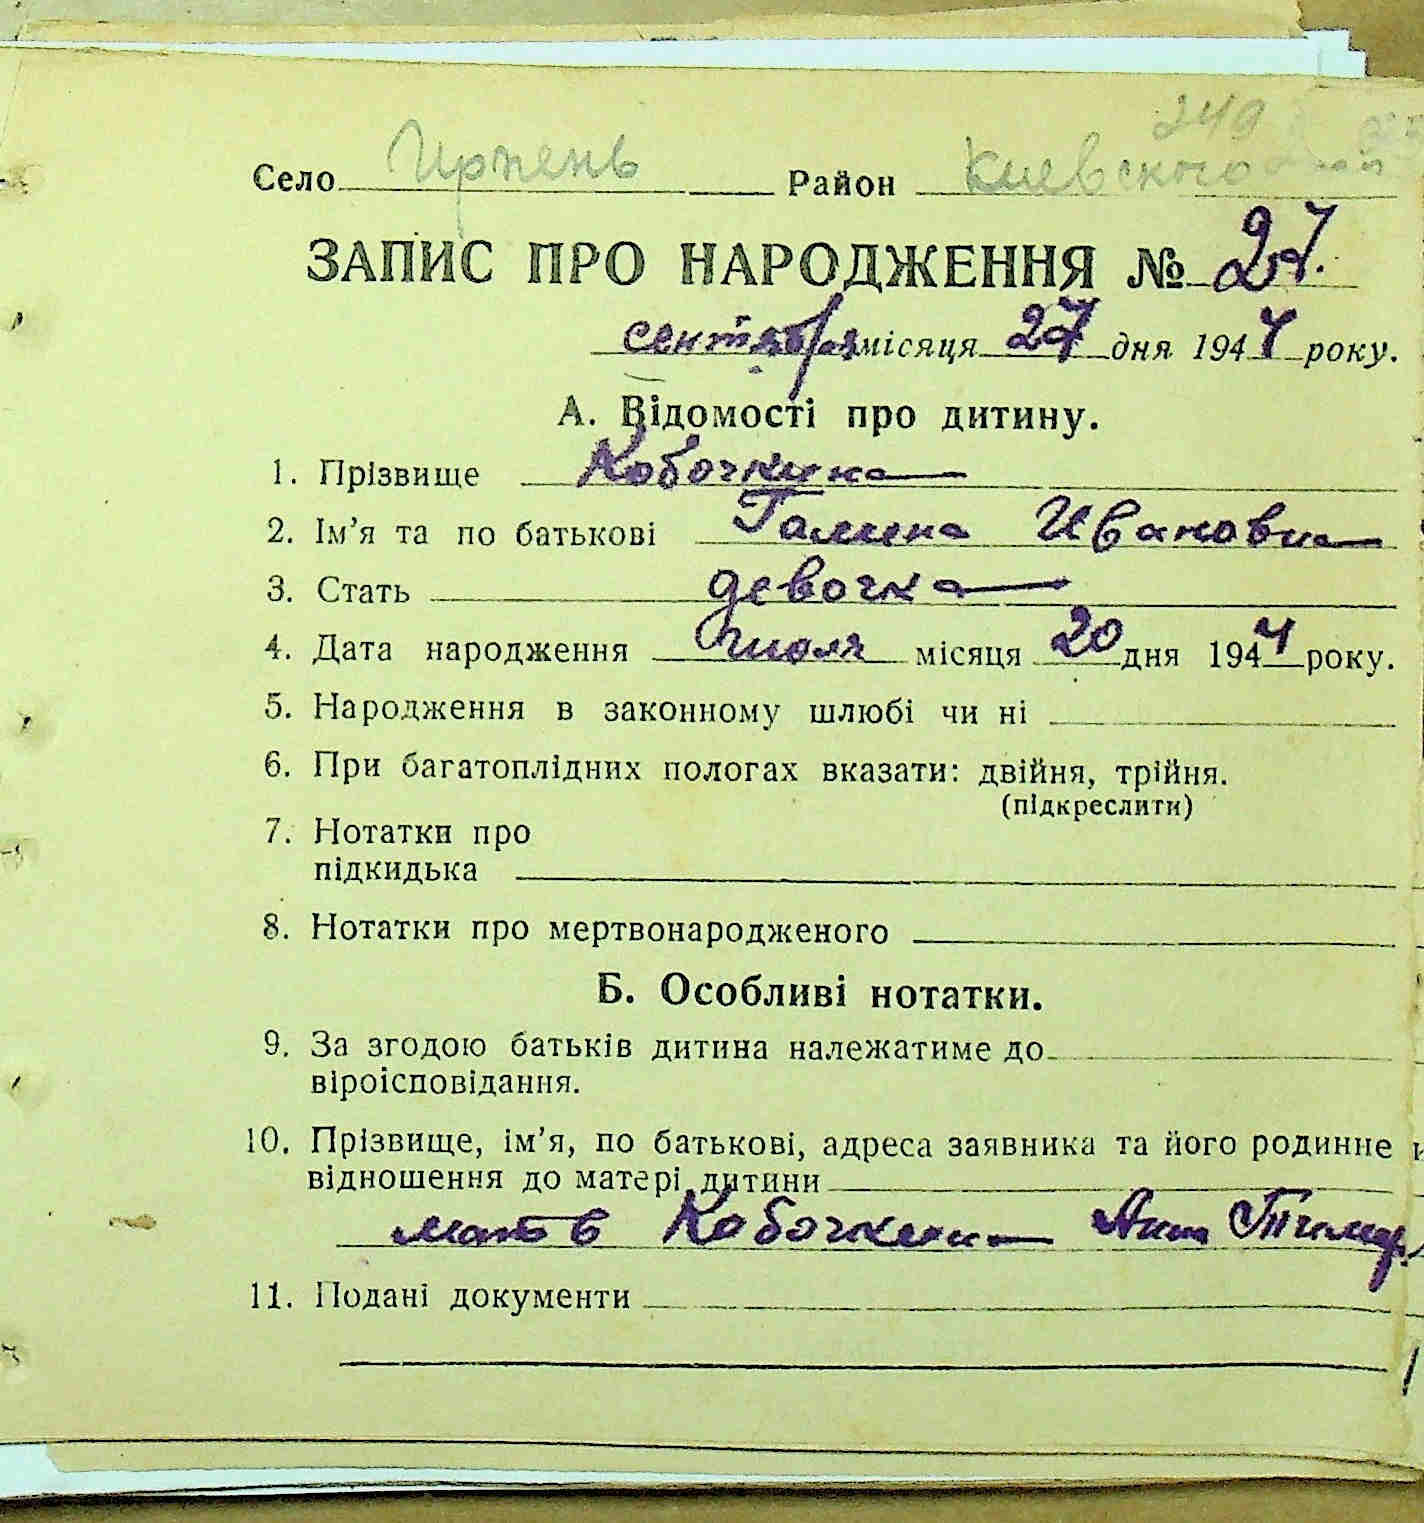 249
Село Ирпень Район Киевского
ЗАПИС ПРО НАРОДЖЕННЯ № 27.
сентября місяця 27 дня 1944 року.
А. Відомості про дитину.
1. Прізвище Кобочкина
2. Ім'я та по батькові Галина Ивановна
3. Стать девочка
4. Дата народження июля місяця 20 дня 1944 року.
5. Народження в законному шлюбі чи ні
6. При багатоплідних пологах вказати: двійня, трійня.
(підкреслити)
7. Нотатки про
підкидька
8. Нотатки про мертвонародженого
Б. Особливі нотатки.
9. За згодою батьків дитина належатиме до
віроісповідання.
10. Прізвище, ім'я, по батькові, адреса заявника та його родинне
відношення до матері дитини
мать Кобочкина Анна
11. Подані документи